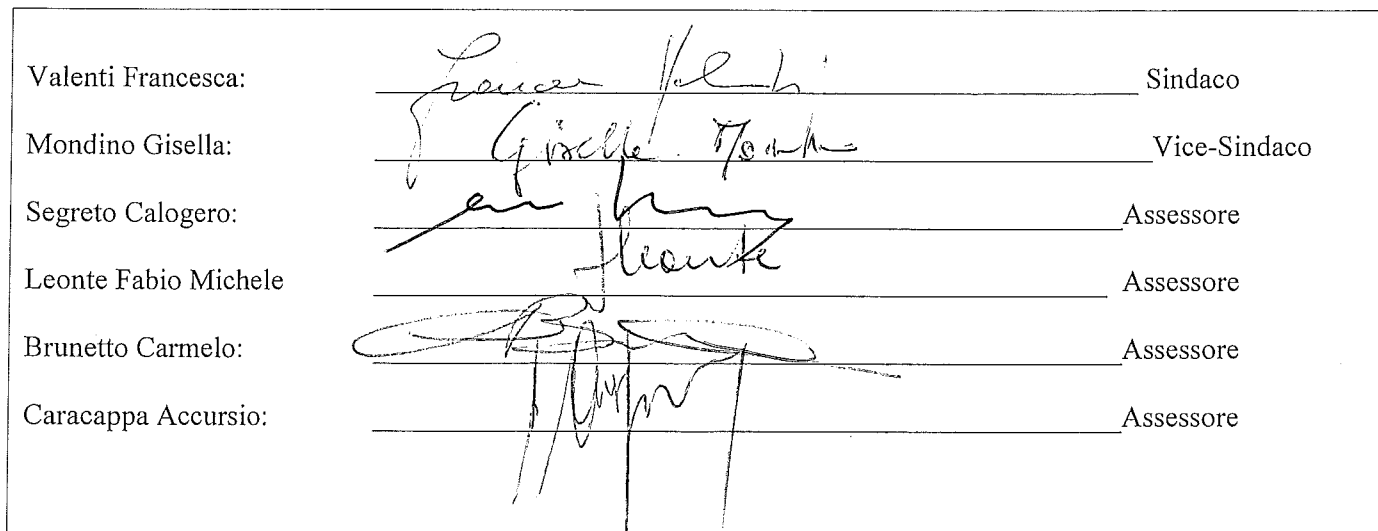 Valenti Francesca: Francesca Valenti Sindaco
Mondino Gisella: Gisella Mondino Vice-Sindaco
Segreto Calogero: Assessore
Leonte Fabio Michele Leonte Assessore
Brunetto Carmelo: Assessore
Caracappa Accursio: Assessore